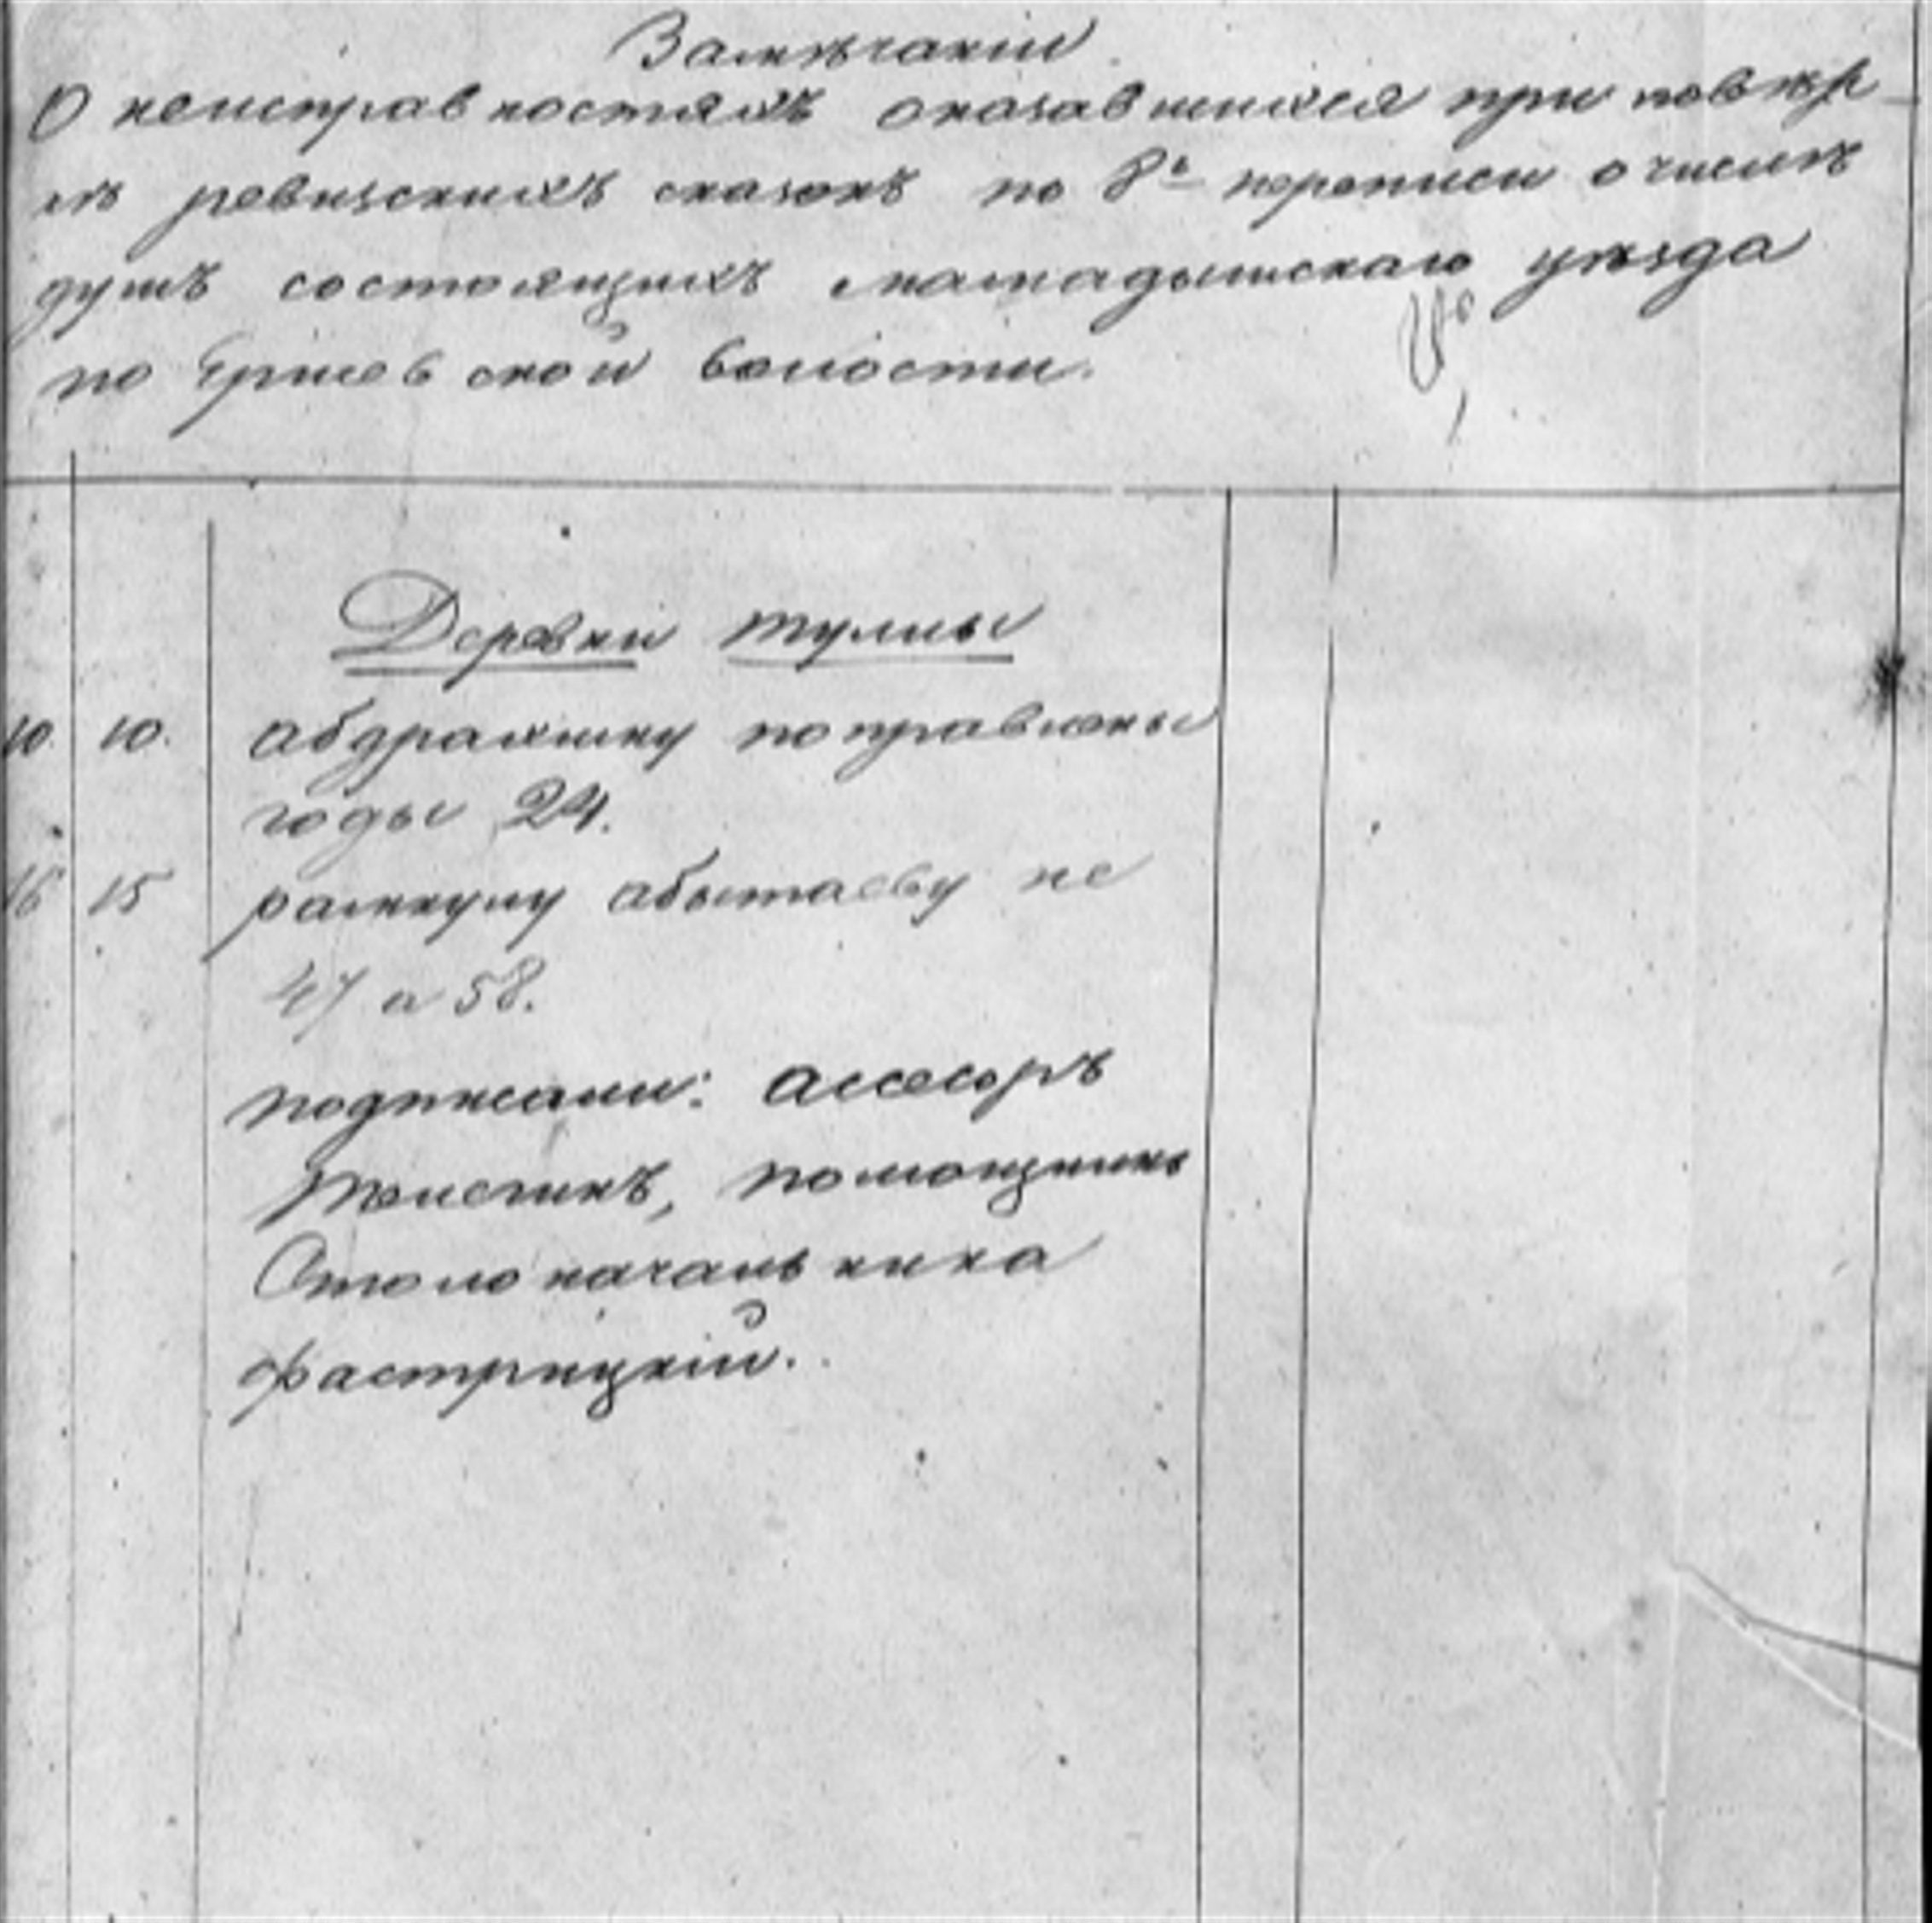 Замѣчанiи
О неисправностяхъ оказавшихся при повѣр-
кѣ ревизскихъ сказокъ по 8й переписи о числѣ
душъ состоящихъ мамадышскаго уѣзда
по волости.
Деревни тулпы
10. 10. абдрахииму поправлены
годы 24.
15 рамкулу абытаеву не
47 а 58.
подписали: ассесоръ
Толстинъ, помощникъ
Столоначальника
Фастрицкiй.